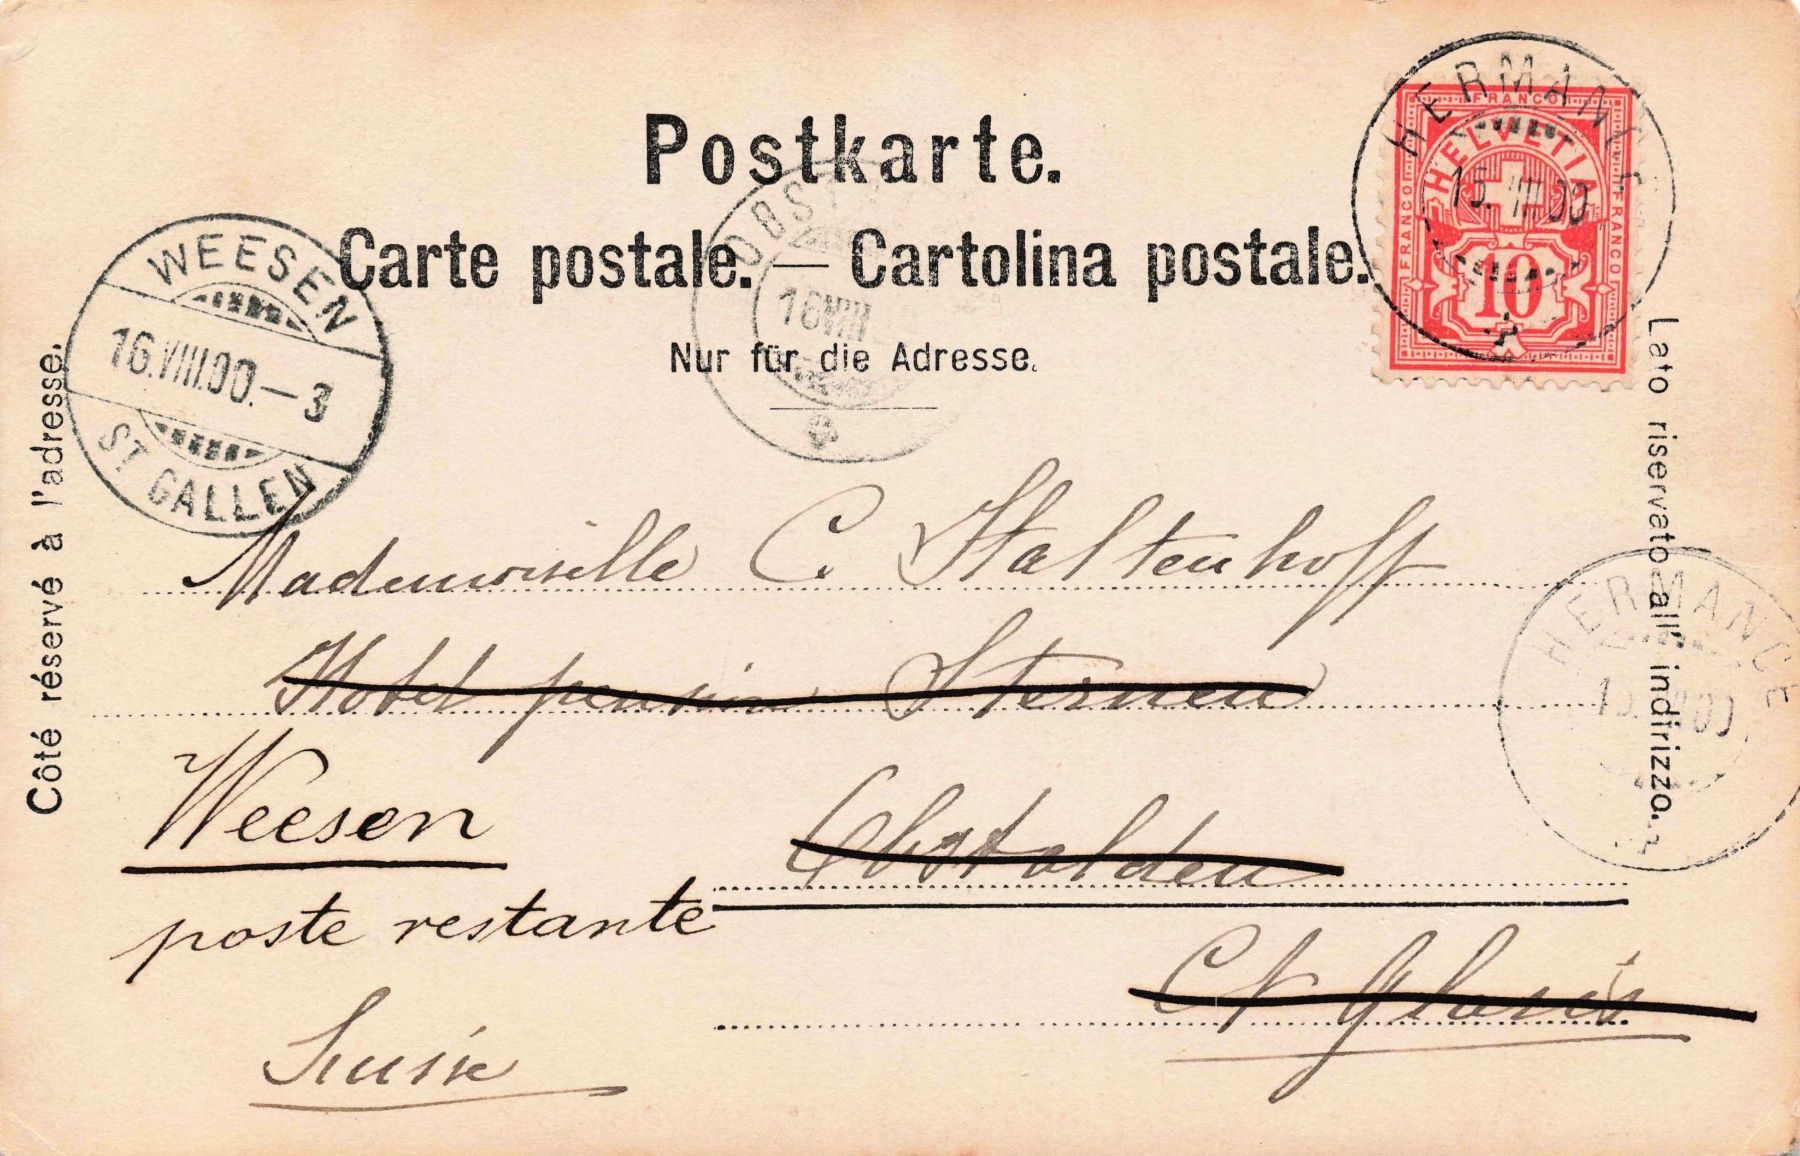 Postkarte.
Carte postale. — Cartolina postale.
Nur für die Adresse.
Côté réservé à l'adresse.
Lato riservato all' indirizzo.
HERMANCE
15. VIII 00
FRANCO
FRANCO
FRANCO
HELVETIA
10
WEESEN
16.VIII.00.—3
ST. GALLEN
OBST
16 VIII
HERMANCE
Mademoiselle C. Staltenhoff
Hotel pension Sternen
Obstalden
Ct Glaris
Weesen
poste restante
Suisse